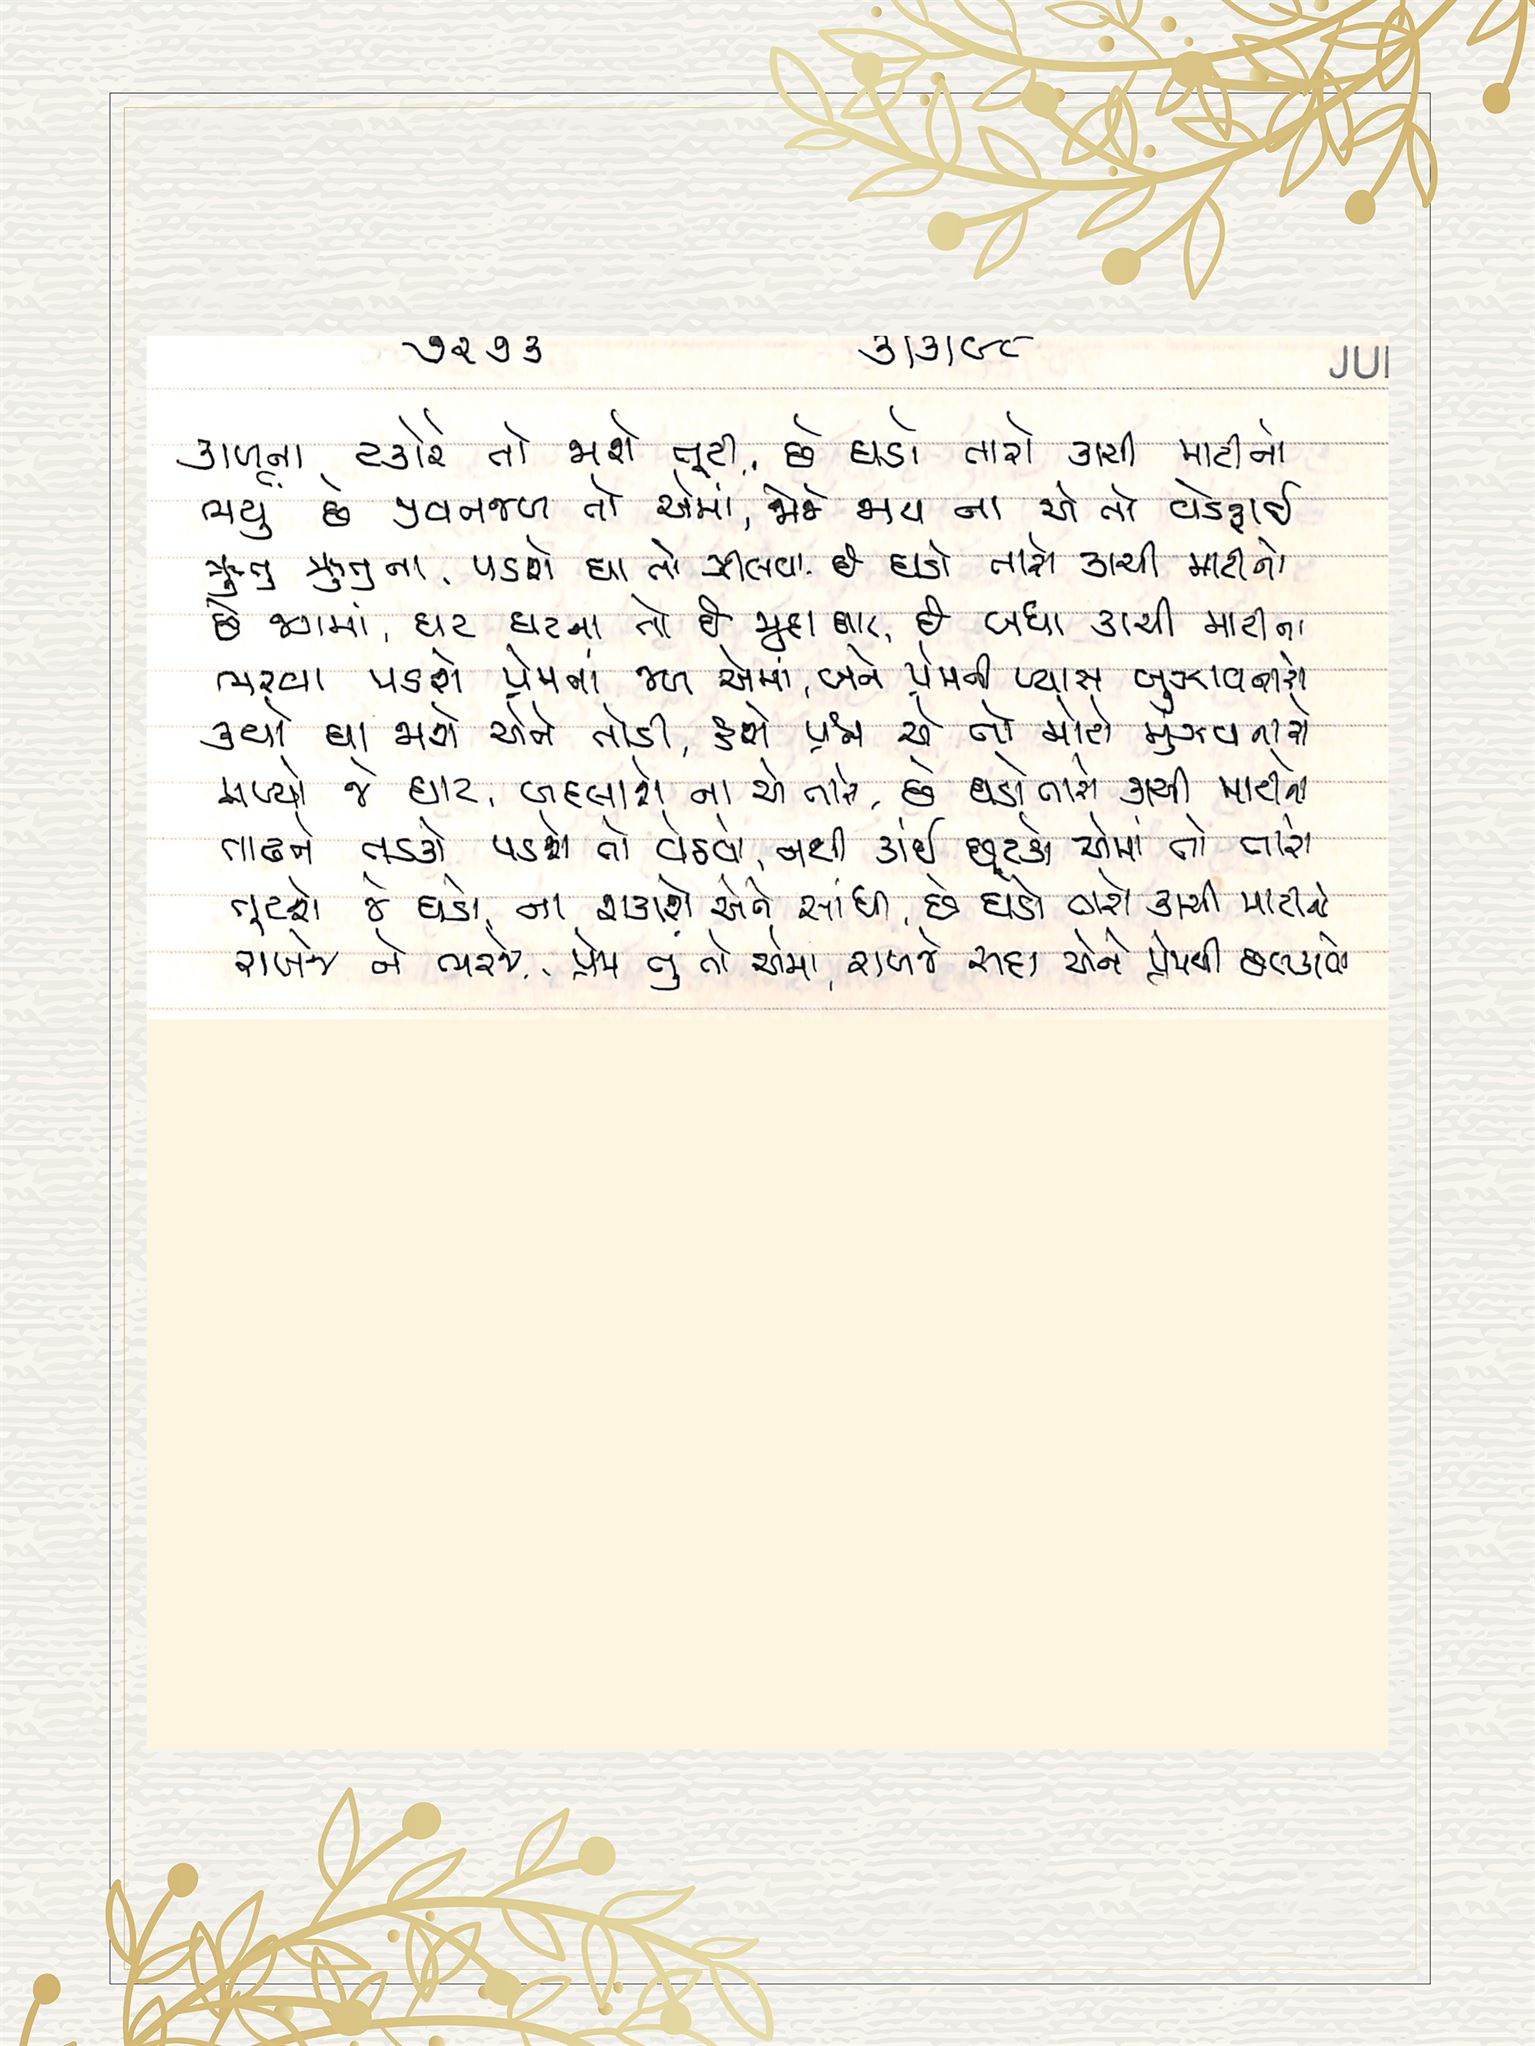 ૭૨૭૩ ૩/૩/૯૮ JUI
કાળના ટકોરે તો જાશે તૂટી, છે ઘડો તારો કાચી માટીનો
ભર્યું છે જીવનજળ તો એમાં, જોજે જાય ના એ તો વેડફાઈ
ઋતુ ઋતુના પડશે ઘા તો ઝીલવા, છે ઘડો તારો કાચી માટીનો
છે જગમાં, ઘાટ ઘાટના તો છે, છે બધા કાચી માટીના
ભરવા પડશે પ્રેમનાં જળ એમાં, બને પ્રેમની પ્યાસ બુઝાવનારો
કયો ઘા જાશે એને તોડી, હશે પ્રશ્ન એ તો મોટો મુંઝવનારો
મળ્યો જે ઘાટ, બદલાશે ના એ તારે, છે ઘડો તારો કાચી માટીનો
તાઢને તડકો પડશે તો વેઠવો, નથી કાંઈ છૂટકો એમાં તો તારો
તૂટશે જે ઘડો, ના શકાશે એને સાંધી, છે ઘડો તારો કાચી માટીનો
રાખજે ને ભરજે, પ્રેમ તું તો એમાં, રાખજે સદા એને પ્રેમથી છલકાવી